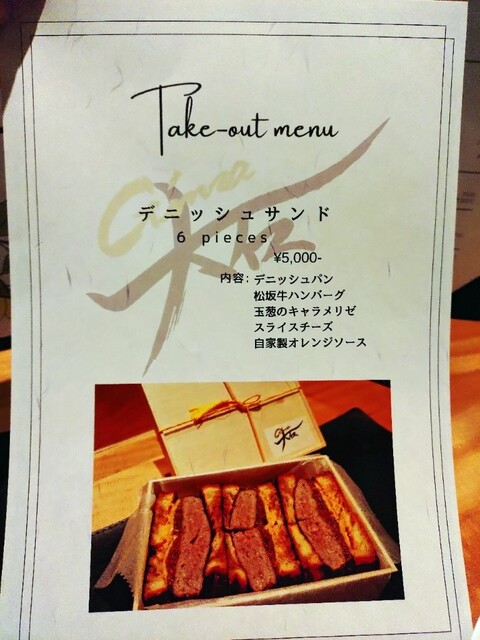 Take-out menu
Ginza
デニッシュサンド
6 pieces
¥5,000-
内容: デニッシュパン
松坂牛ハンバーグ
玉葱のキャラメリゼ
スライスチーズ
自家製オレンジソース